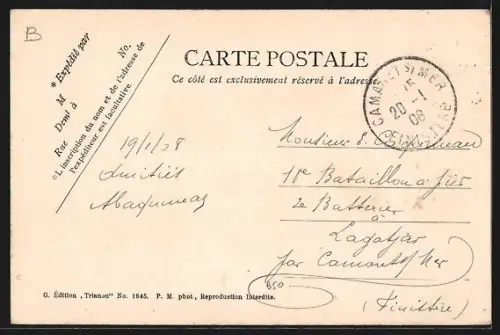 B
* Expédié par
No.
M
Demt à
Rue
°L'inscription du nom et de l'adresse de
l'expéditeur est facultative.
CARTE POSTALE
Ce côté est exclusivement réservé à l'adresse.
CAMARET S/MER
15
20-1
08
FINISTERE
19/1/08
Amitiés
Monsieur
11e Bataillon à pied
2e Batterie
à
Lagatjar
par Camaret s/ Mer
(Finistère)
G. Édition „Trianon" No. 1845. P. M. phot, Reproduction Interdite.